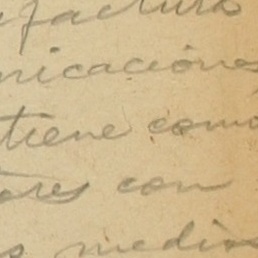 efacturas
nicaciones
tiene como
ores con
s medios